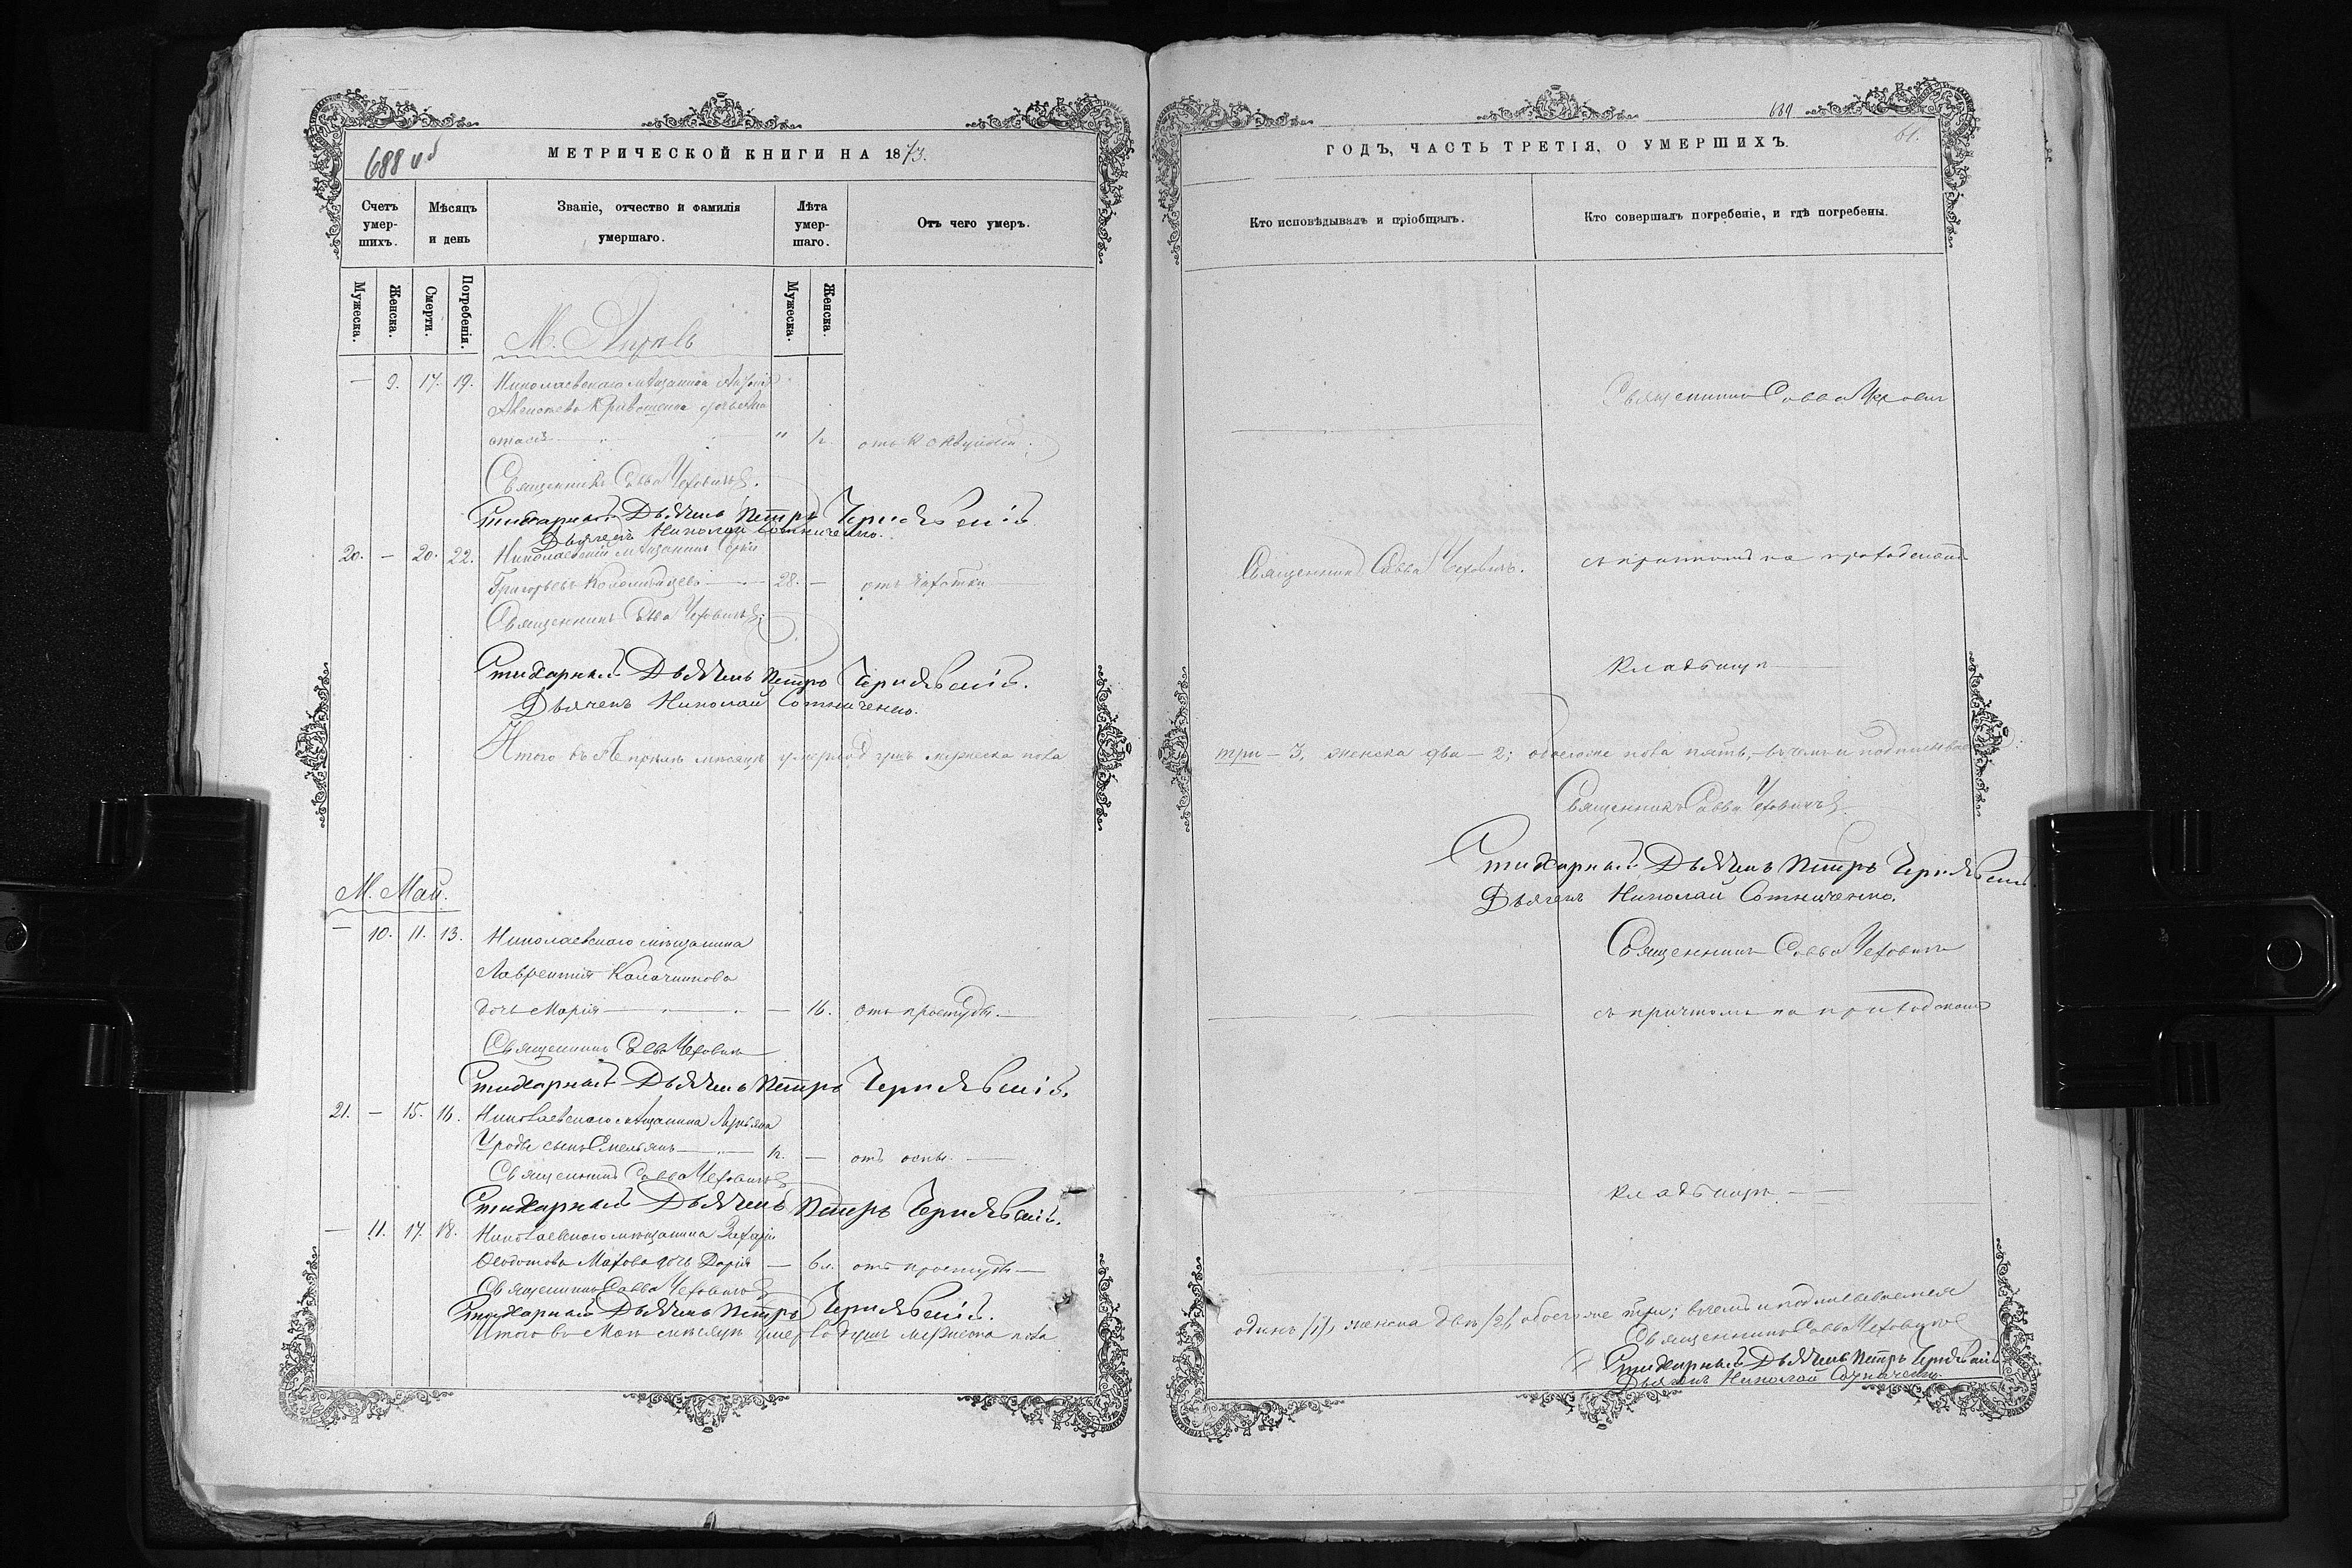 688 об
МЕТРИЧЕСКОЙ КНИГИ НА 1873.
Счетъ умер-шихъ.
Мѣсяцъ и день
Званіе, отчество и фамилія умершаго.
Лѣта умер-шаго.
Отъ чего умеръ.
Мужеска.
Женска.
Смерти.
Погребенія.
Мужеска.
Женска.
М. Апрѣль
— 9. 17. 19. Николаевскаго мѣщанина
дочь
" 1/2.
Священникъ Савва Чеховичъ.
Стихарный Дьячекъ Петръ Чернявскій
Дьячекъ Николай Сотниченко.
20. — 20. 22. Николаевскій мѣщанинъ
Григорьевъ 28. — отъ чахотки
Священникъ Савва Чеховичъ
Стихарный Дьячекъ Петръ Чернявскій.
Дьячекъ Николай Сотниченко.
Итого въ Апрѣлѣ мѣсяцѣ умерло душъ мужеска пола
М. Май.
— 10. 11. 13. Николаевскаго мѣщанина
Лаврентія Калачникова
дочь Марія — 16. отъ простуды.
Священникъ Савва Чеховичъ
Стихарный Дьячекъ Петръ Чернявскій.
21. — 15. 16. Николаевскаго мѣщанина
сынъ Емельянъ 1/2. — отъ оспы.
Священникъ Савва Чеховичъ
Стихарный Дьячекъ Петръ Чернявскій.
— 11. 17. 18. Николаевскаго мѣщанина Захарія
Ѳеодотова Махова дочь Дарія — отъ простуды
Священникъ Савва Чеховичъ
Стихарный Дьячекъ Петръ Чернявскій.
Итого въ Маѣ мѣсяцѣ умерло душъ мужеска пола
689
61.
ГОДЪ, ЧАСТЬ ТРЕТІЯ, О УМЕРШИХЪ.
Кто исповѣдывалъ и пріобщалъ.
Кто совершалъ погребеніе, и гдѣ погребены.
Священникъ Савва Чеховичъ
Священникъ Савва Чеховичъ.
съ причтомъ на приходскомъ
кладбищѣ
три — 3, женска два — 2; обоего же пола пять, — въ чемъ и подписываемся:
Священникъ Савва Чеховичъ
Стихарный Дьячекъ Петръ Чернявскій.
Дьячекъ Николай Сотниченко.
Священникъ Савва Чеховичъ
съ причтомъ на приходскомъ
кладбищѣ
одинъ /1/, женска двѣ /2/, обоего же три; въ чемъ и подписываемся
Священникъ Савва Чеховичъ
Стихарный Дьячекъ Петръ Чернявскій
Дьячекъ Николай Сотниченко.